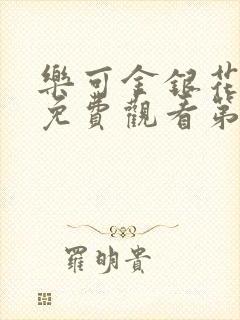 樂可金銀花
免費觀看第
羅明貴